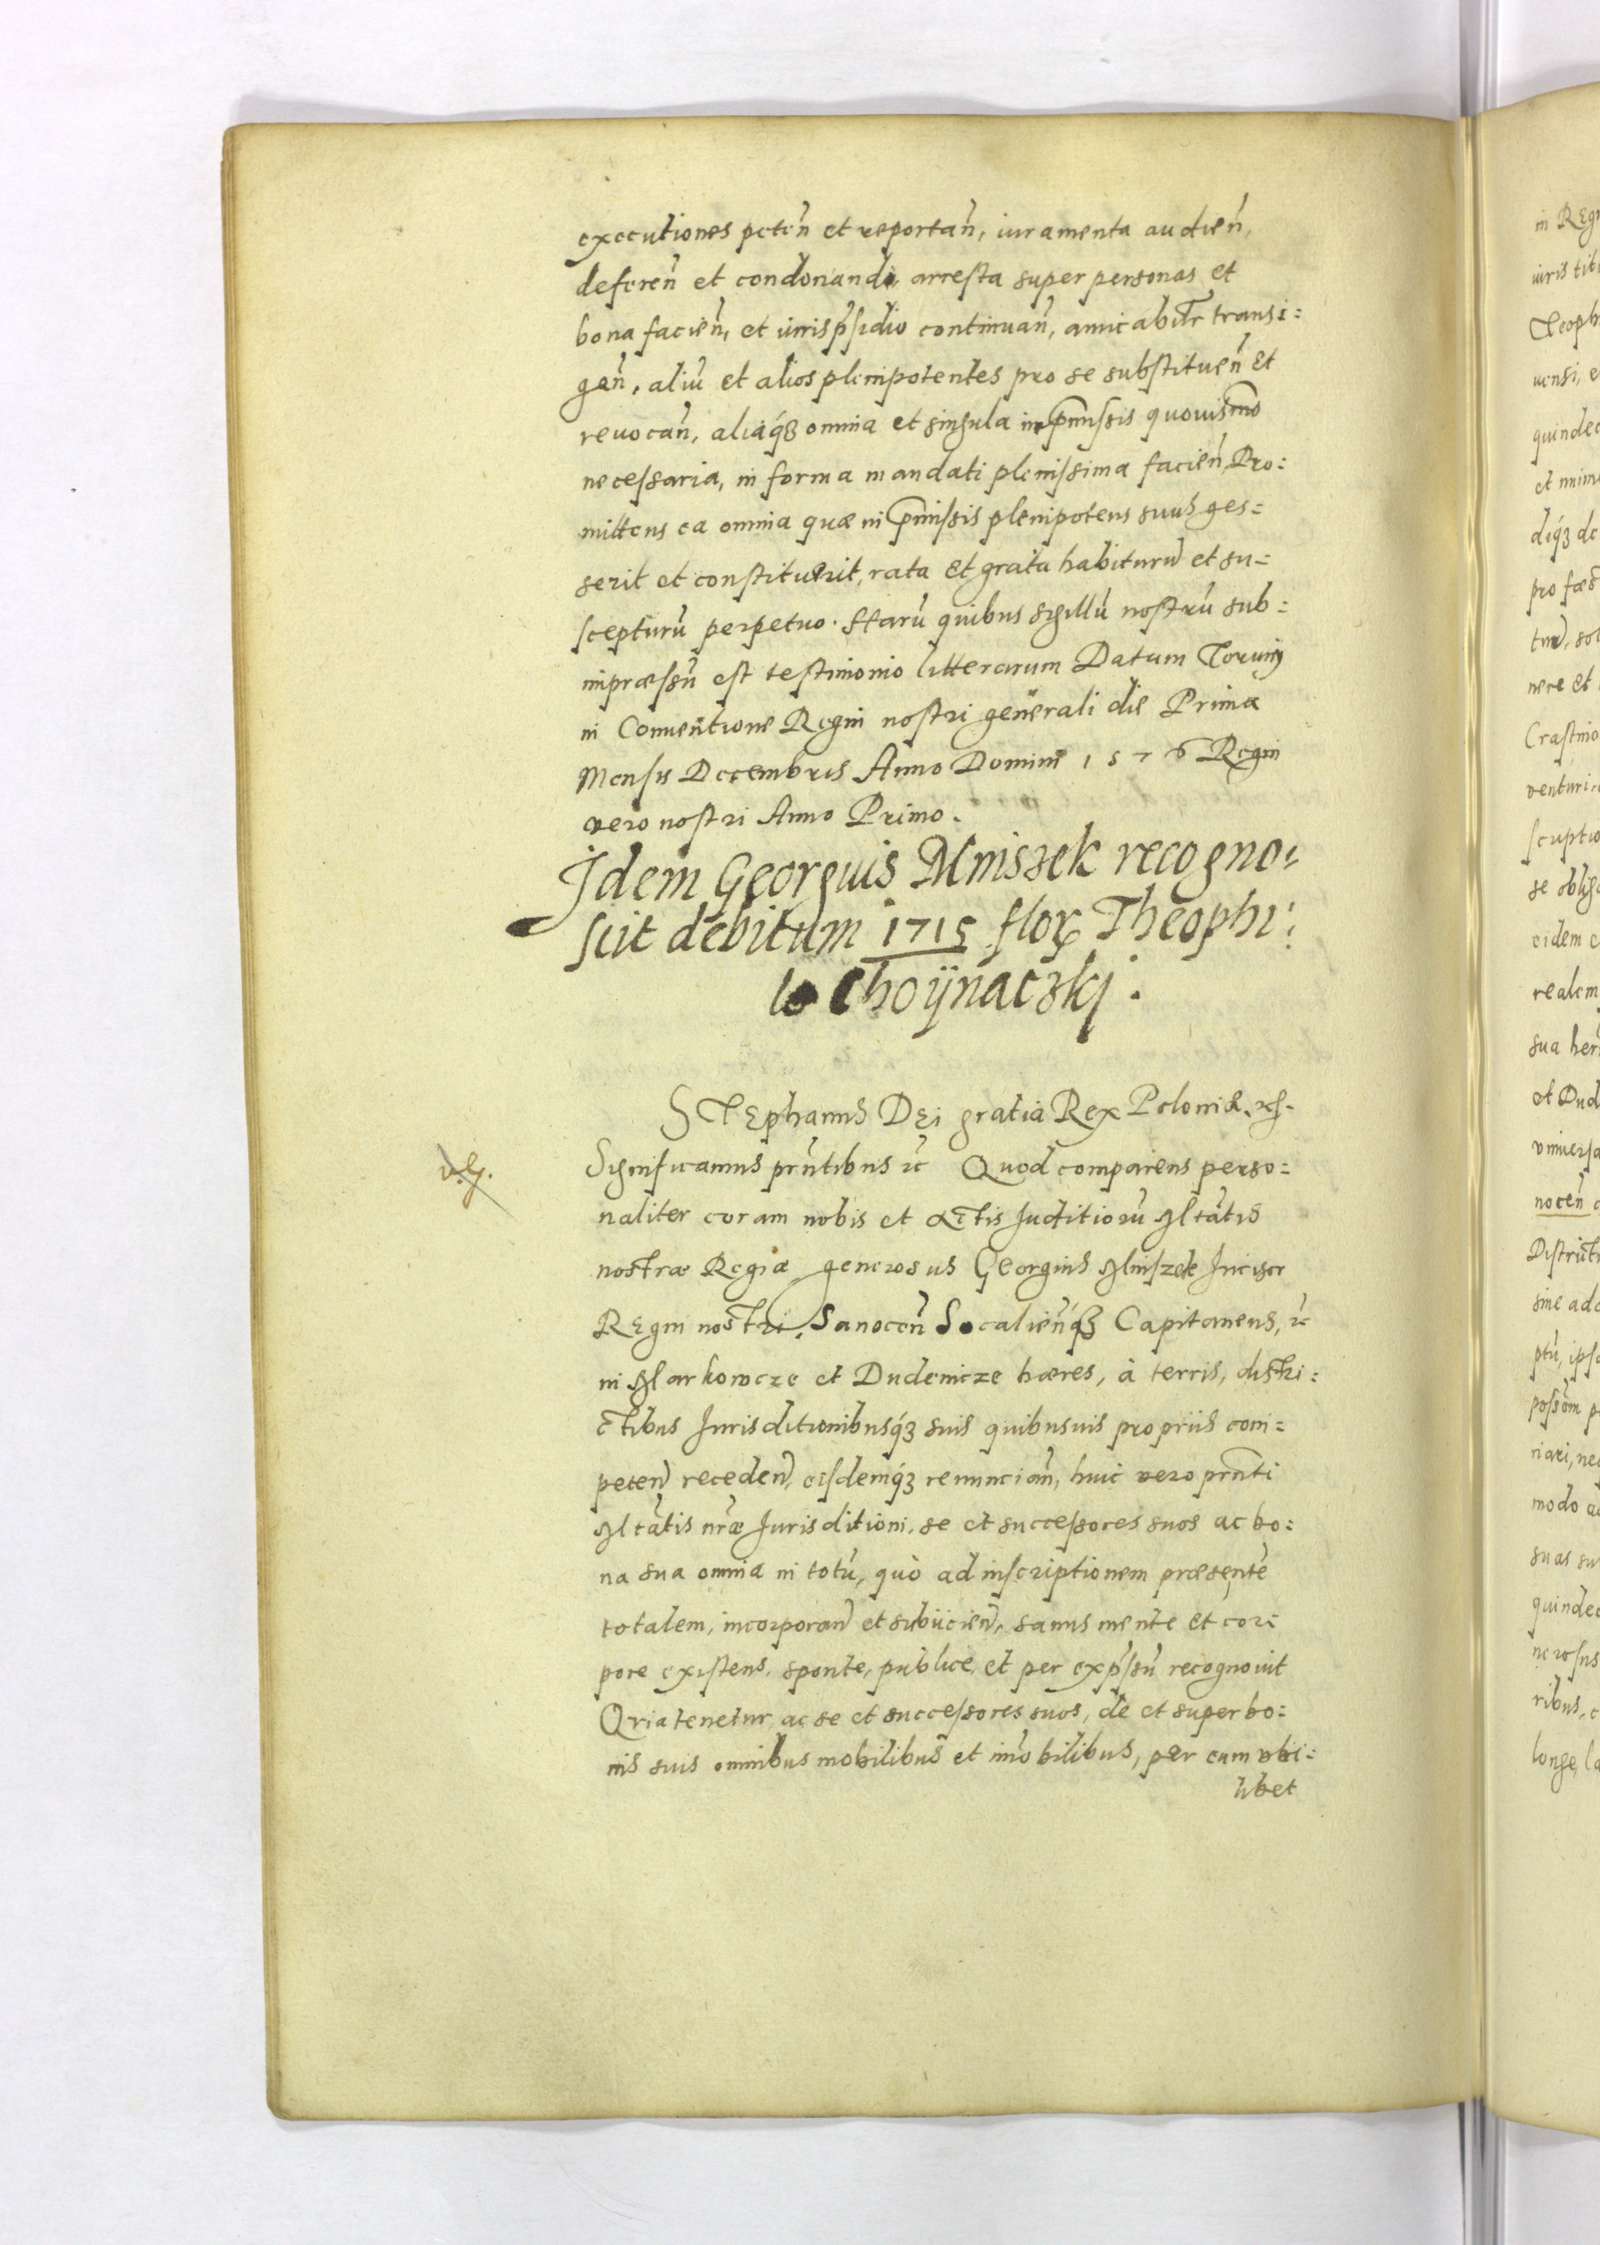 executiones peteñ et reportañ, iuramenta audieñ,
defereñ et condonandi, arresta super personas et
bona facieñ, et iuris p̃sidio continuañ, amicabilr̃ transi:
geñ, aliũ et alios plenipotentes pro se substitueñ et
reuocañ, aliaq́ꝫ omnia et singula in p̃missis quouismõ
necessaria, in forma mandati plenissima facieñ, Pro:
mittens ea omnia quæ in p̃missis plenipotens suus ges=
serit et constituerit, rata et grata habiturũ et su=
scepturũ perpetuo. Harũ quibus sigillũ nostrũ sub:
impræssũ est testimonio litterarum Datum Torunij
in Conuentione Regni nostri generali die Prima
Mensis Decembris Anno Domini 1576 Regni
vero nostri Anno Primo.
Idem Georgius Mniszek recogno:
scit debitum 1715 flor Theophi:
lo Choÿnaczkj.
STEphanus DEi gratia Rex Poloniæ, ꝛc.
Significamus prñtibus ꝛc Quod comparens perso:
naliter coram nobis et actis Juditiorũ Mtãtis
nostræ Regiæ generosus Georgius Mniszek Incisor
REgni nostri, Sanoceñ Socalieñq́ꝫ Capitaneus, ꝛc
in Markowcze et Dudenicze hæres, à terris, distri:
ctibus Jurisditionibusq́ꝫ suis quibusuis propriis com=
peteñ recedeñ, eisdemq́ꝫ renunciañ, huic vero prñti
Mtãtis nr̃æ Jurisditioni, se et successores suos ac bo:
na sua omnia in totũ, quò ad inscriptionem præsentẽ
totalem, incorporañ et subiicieñ, sanus mente et cor:
pore existens, sponte, publice, et per exp̃ssũ recognouit
Qria tenetur, ac se et successores suos, de et super bo:
nis suis omnibus mobilibus et im̃obilibus, per eum vbi:
libet